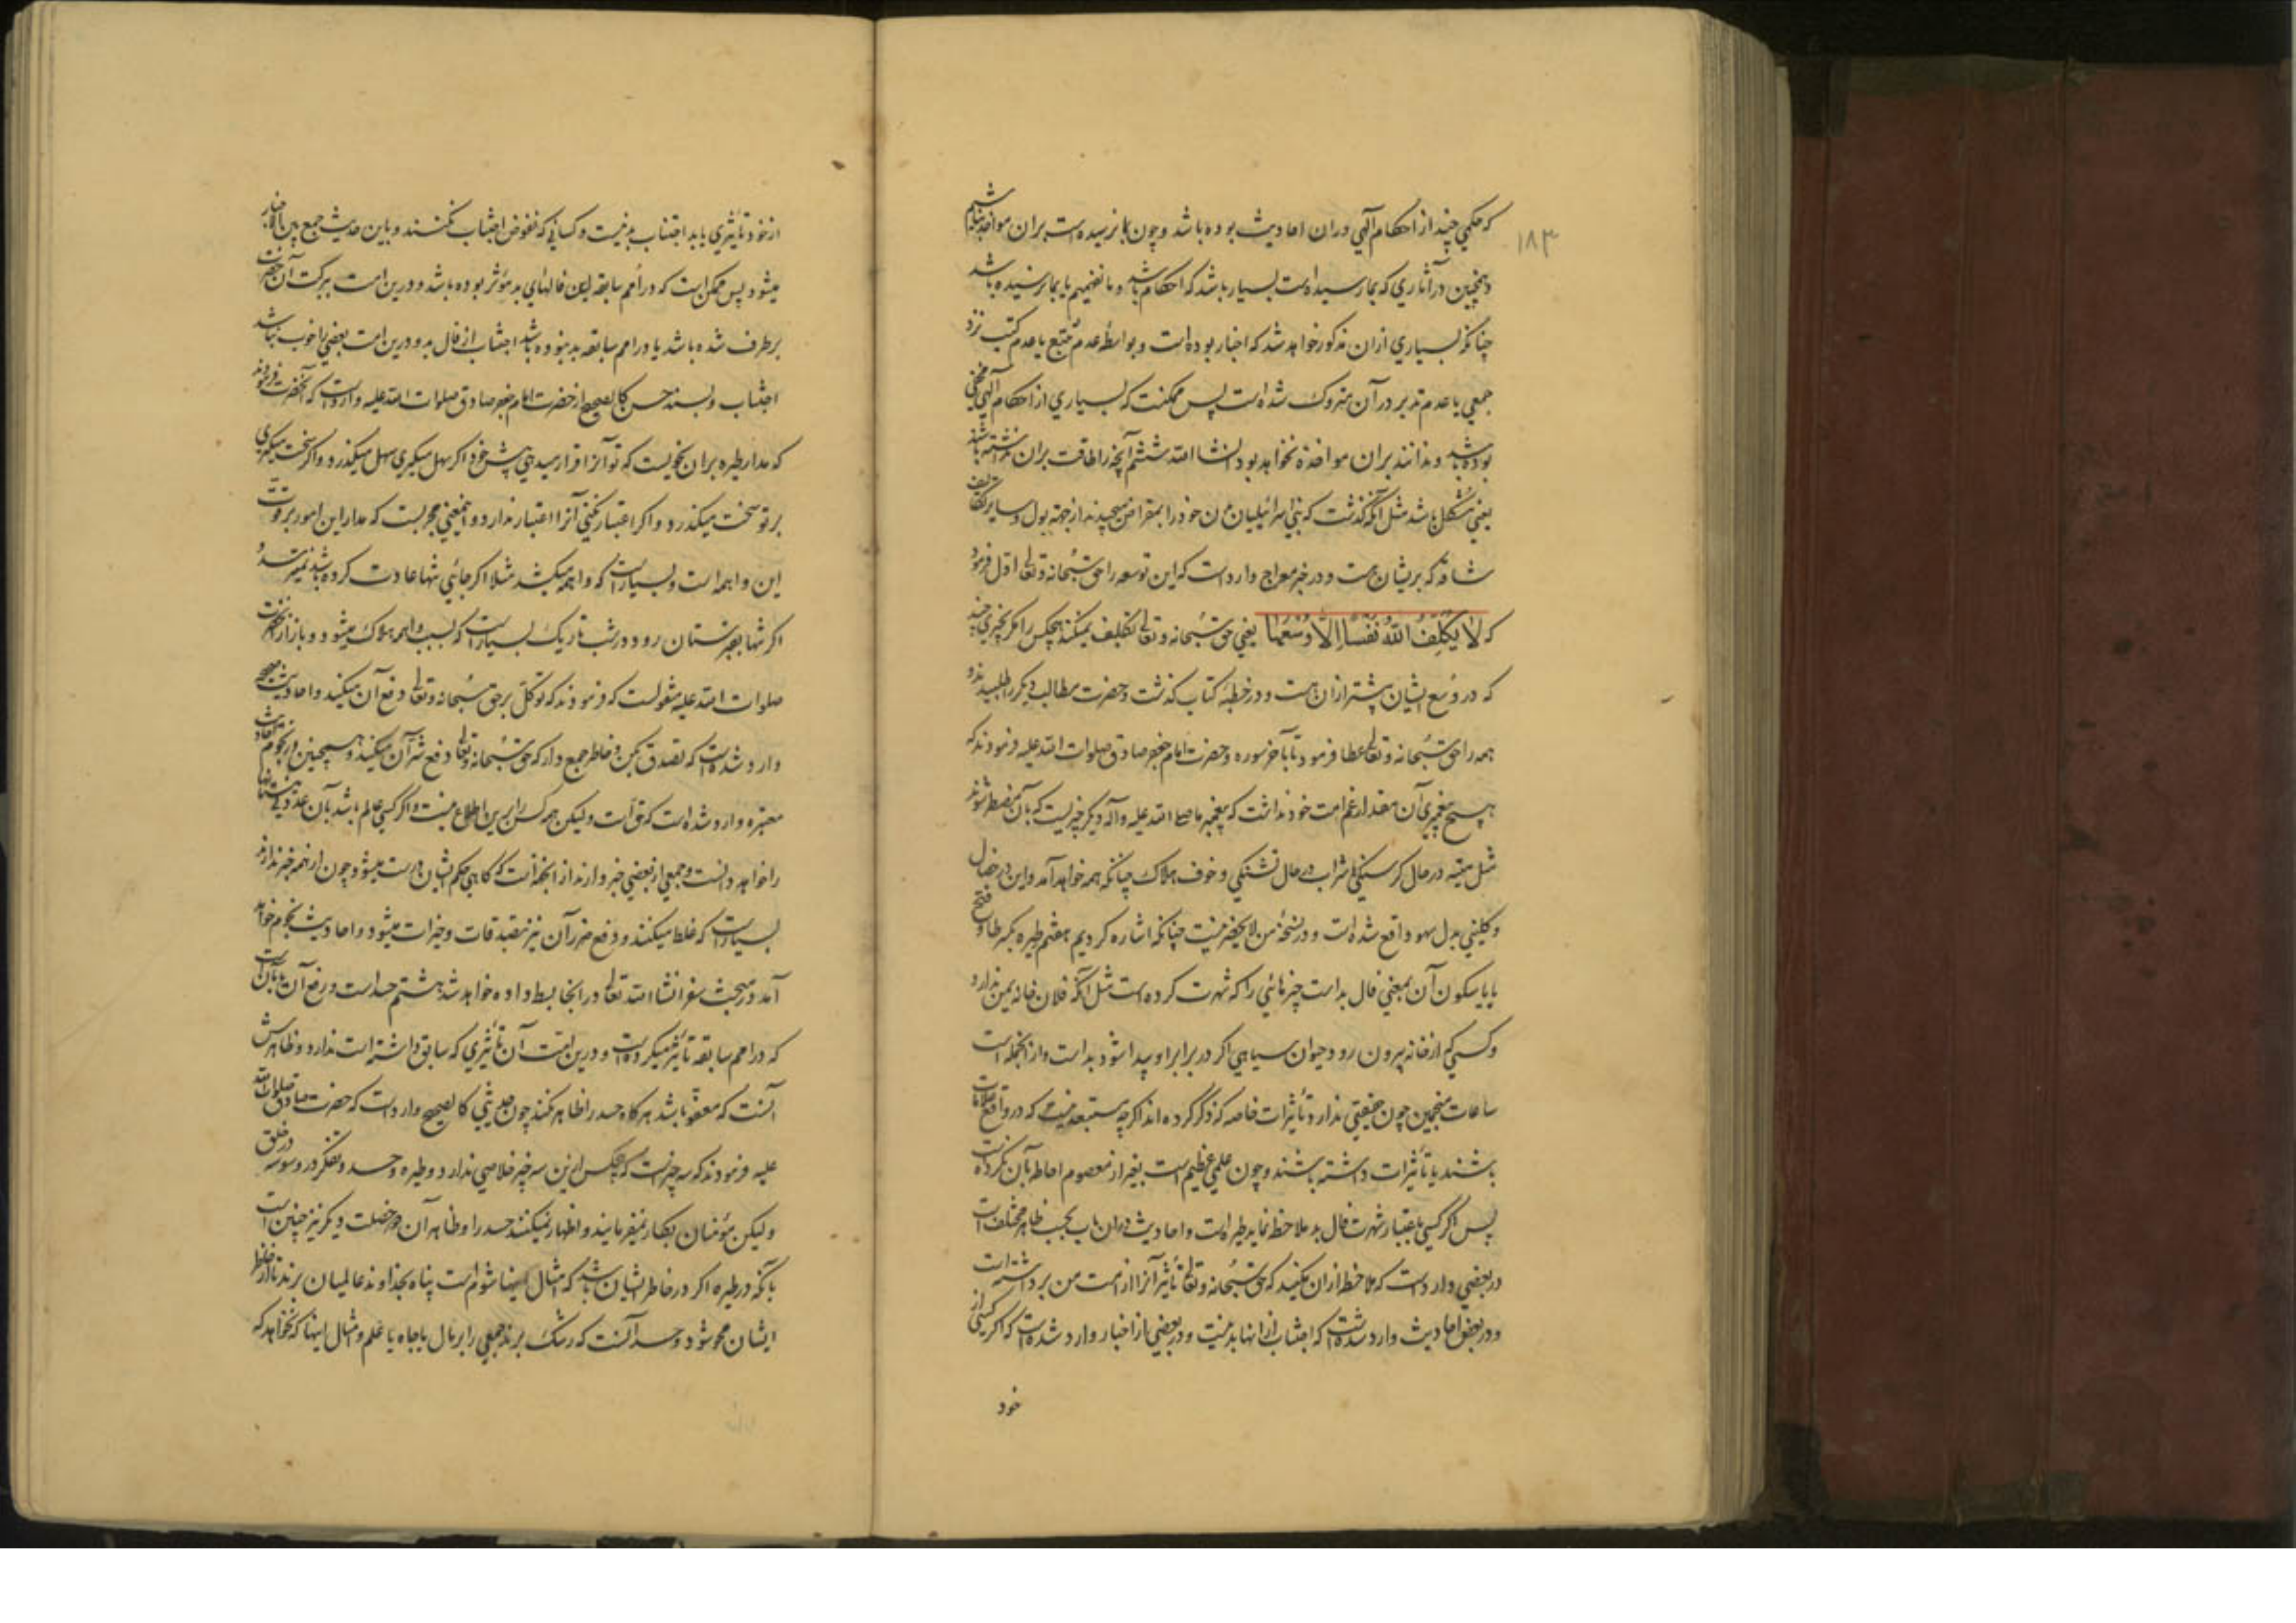 ۱۸۳
که حکمی چند از احکام الهی در ان احادیث بوده باشد و چون بما نرسیده است بر ان مواخذ نباشیم
و همچنین در آثاری که بما رسیده است بسیار باشد که احکام باشد و ما نفهمیم یا بما نرسیده باشد
چنانکه بسیاری از ان مذکور خواهد شد که اخبار بوده است و بواسطهٔ عدم تتبع یا عدم کتب نزد
جمعی یا عدم تدبر در آن متروک شده است پس ممکنست که بسیاری از احکام الهی مخفی
بوده باشد و ندانند بر ان مواخذه نخواهد بود انشا الله ششم آنچه را طاقت بران نداشته باشند
یعنی مشکل باشد مثل آنکه گذشت که بنی اسرائیلیان خود را بمقراض می‌چیدند از جهة بول و سایر تکالیف
شاقه که بریشان هست و در خبر معراج وارد است که این توسعه را حق سبحانه و تعالی اول فرمود
که لا یکلف الله نفسا الا وسعها یعنی حق سبحانه و تعالی تکلیف نمیکند هیچکس را مگر بچیزی چند
که در وسع ایشان بیشتر از ان هست و در خطبهٔ کتاب گذشت و حضرت مطالب دیگر را طلبیدند و
همه را حق سبحانه و تعالی عطا فرمود تا بآخر سوره و حضرت امام جعفر صادق صلوات الله علیه فرمودند که
هیچ پیغمبری آن مقدار غم امت خود نداشت که پیغمبر ما صلی الله علیه و آله دیگر چیزیست که بآن مضطر شوند
مثل میته در حال گرسنگی یا شراب در حال تشنگی و خوف هلاک چنانکه همه خواهد آمد و این در خصال
و کلینی بدل سهو واقع شده است و در نسخهٔ من لا یحضر نیست چنانکه اشاره کردیم هفتم طیره بکسر طا و فتح
یا یا سکون آن بمعنی فال بد است چیزهائی را که شهرت کرده است مثل آنکه فلان خانه یمن ندارد
و کسی که از خانه بیرون رود حیوان سیاهی اگر در برابر او پیدا شود بد است و از انجمله است
ساعات منجمین چون حقیقتی ندارد تأثیرات خاصه که ذکر کرده‌اند اگرچه مستبعد نیست که در واقع علامات
باشند یا تأثیرات داشته باشند و چون علمی عظیم است بغیر از معصوم احاطه بآن نکرده است
پس اگر کسی باعتبار شهرت فال بد ملاحظه نماید طیره است و احادیث در ان باب بحسب ظاهر مختلف است
در بعضی وارد است که ملاحظه از ان مکنید که حق سبحانه و تعالی تأثیر آنرا از امت من برداشته است
و در بعض احادیث وارد شده است که اجتناب از انها بد نیست و در بعضی از اخبار وارد شده است که اگر کسی از
خود
از خود تأثیری یابد اجتناب بد نیست و کسانی که تفویض اجتناب نکنند و باین حدیث جمع بین الاخبار
میشود پس ممکن است که در امم سابقه این فالهای بد مؤثر بوده باشد و درین امت ببرکت آن حضرت
برطرف شده باشد یا در امم سابقه بد نبوده باشد اجتناب از فال بد و درین امت بعضی را خوب نباشد
اجتناب و بسند حسن کالصحیح از حضرت امام جعفر صادق صلوات الله علیه وارد است که آنحضرت فرمودند
که مدار طیره بر ان نحویست که تو آنرا قرار میدهی پیش خود اگر سهل میگیری سهل میگذرد و اگر سخت میگیری
بر تو سخت میگذرد و اگر اعتبار نکنی آنرا اعتبار ندارد و اینمعنی مجربست که مدار این امور بر قوت
این واهمه است و بسیار است که واهمه میکشد مثلا اگر جائی تنها عادت کرده باشد نمیترسد و
اگر تنها بقبرستان رود در شب تاریک بسیار است که بسبب واهمه هلاک میشود و باز از حضرت
صلوات الله علیه منقولست که فرمودند که توکل بر حق سبحانه و تعالی دفع آن میکند و احادیث صحیحه
وارد شده است که تصدق بکن و خاطر جمع دار که حق سبحانه و تعالی دفع شر آن میکند و همچنین از نجوم احادیث
معتبره وارد شده است که حق است ولیکن همه کس را برین اطلاع نیست و اگر کسی عالم باشد بآن
را خواهد دانست و جمعی از بعضی خبر دارند از انجهتست که گاهی حکم ایشان درست میشود و چون از همه خبر ندارند
بسیار است که غلط میکنند و دفع ضرر آن نیز بتصدقات و خیرات میشود و احادیث نجوم خواهد
آمد در مبحث سفر انشا الله تعالی در انجا بسط داده خواهد شد هشتم حسد است و رفع آن
که در امم سابقه تأثیر میکرده است و درین امت آن تأثیری که سابق داشته است ندارد و ظاهرش
آنست که معفو باشد هرگاه حسد را ظاهر نکند چون حدیثی کالصحیح وارد است که حضرت صادق صلوات الله
علیه فرمودند که سه چیز است که هیچکس از این سه چیز خلاصی ندارد و طیره و حسد و تفکر در وسوسه در خلق
ولیکن مؤمنان بکار نمیفرمایند و اظهار نمیکنند حسد را و ظاهر آن دو خصلت دیگر نیز چنین است
بآنکه در طیره اگر در خاطر ایشان باشد که امثال اینها شوم است پناه بخداوند عالمیان برند تا از خاطر
ایشان محو شود و حسد آنست که رشک برند جمعی را بر مال یا جاه یا علم و امثال اینها که نخواهد که